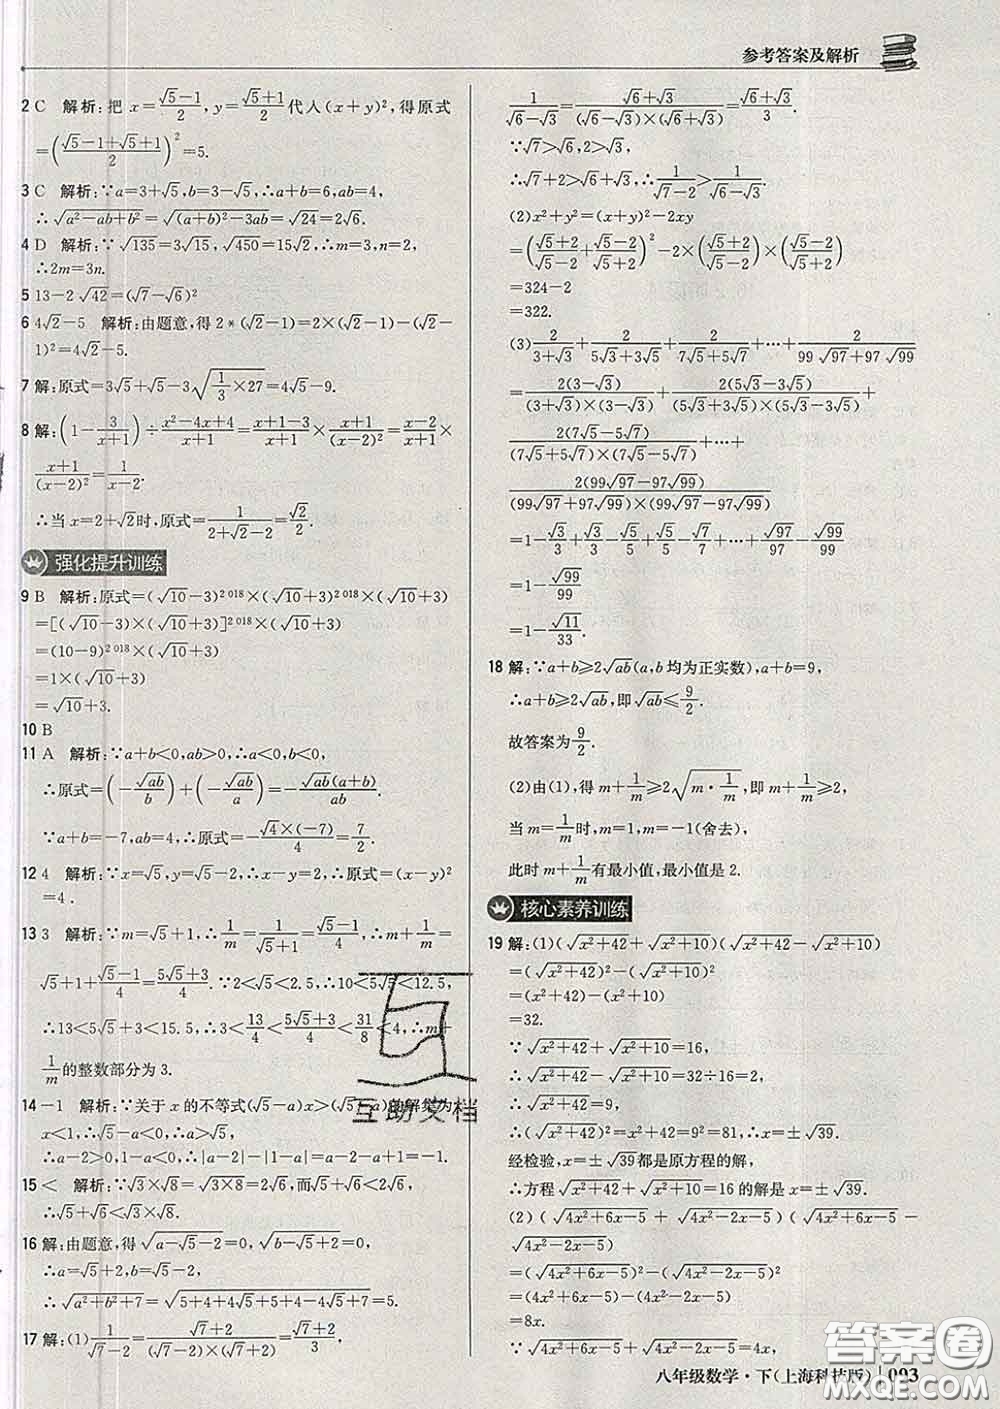 参考答案及解析
2 C 解析:把 x=(√5-1)/2, y=(√5+1)/2 代入(x+y)², 得原式
=((√5-1+√5+1)/2)²=5.
3 C 解析:∵a=3+√5,b=3-√5,∴a+b=6,ab=4,
∴√(a²-ab+b²)=√((a+b)²-3ab)=√24=2√6.
4 D 解析:∵√135=3√15,√450=15√2,∴m=3,n=2,
∴2m=3n.
5 13-2√42=(√7-√6)²
6 4√2-5 解析:由题意,得2*(√2-1)=2×(√2-1)-(√2-
1)²=4√2-5.
7 解:原式=3√5+√5-3√(1/3×27)=4√5-9.
8 解:(1-3/(x+1))÷(x²-4x+4)/(x+1)=(x+1-3)/(x+1)×(x+1)/(x-2)²=(x-2)/(x+1)×
(x+1)/(x-2)²=1/(x-2).
∴当x=2+√2时,原式=1/(2+√2-2)=√2/2.
强化提升训练
9 B 解析:原式=(√10-3)^2 018×(√10+3)^2 018×(√10+3)
=[(√10-3)×(√10+3)]^2 018×(√10+3)
=(10-9)^2 018×(√10+3)
=1×(√10+3)
=√10+3.
10 B
11 A 解析:∵a+b<0,ab>0,∴a<0,b<0,
∴原式=(-√ab/b)+(-√ab/a)=-√ab(a+b)/ab.
∵a+b=-7,ab=4,∴原式=-√4×(-7)/4=7/2.
12 4 解析:∵x=√5,y=√5-2,∴x-y=2,∴原式=(x-y)²
=4.
13 3 解析:∵m=√5+1,∴1/m=1/(√5+1)=(√5-1)/4,∴m+1/m=
√5+1+(√5-1)/4=(5√5+3)/4.∵2<√5<2.5,∴10<5√5<12.5,
∴13<5√5+3<15.5,∴3<13/4<(5√5+3)/4<31/8<4,∴m+
1/m的整数部分为3.
14 -1 解析:∵关于x的不等式(√5-a)x>(√5-a)的解集为
x<1,∴√5-a<0,∴a>√5,
∴a-2>0,1-a<0,∴|a-2|-|1-a|=a-2-a+1=-1.
15 < 解析:∵√3×√8=√(3×8)=2√6,而√5<2√6,
∴√5+√6<√3×√8.
16 解:由题意,得√(a-√5-2)=0,√(b-√5+2)=0,
∴a=√5+2,b=√5-2,
∴√(a²+b²+7)=√(5+4+4√5+5+4-4√5+7)=5.
17 解:(1)1/(√7-2)=(√7+2)/((√7-2)×(√7+2))=(√7+2)/3,
1/(√6-√3)=(√6+√3)/((√6-√3)×(√6+√3))=(√6+√3)/3.
∵√7>√6,2>√3,
∴√7+2>√6+√3,∴1/(√7-2)>1/(√6-√3).
(2)x²+y²=(x+y)²-2xy
=((√5+2)/(√5-2)+(√5-2)/(√5+2))²-2×((√5+2)/(√5-2))×((√5-2)/(√5+2))
=324-2
=322.
(3)2/(3+√3)+2/(5√3+3√5)+2/(7√5+5√7)+…+2/(99√97+97√99)
=2(3-√3)/((3+√3)×(3-√3))+2(5√3-3√5)/((5√3+3√5)×(5√3-3√5))+
2(7√5-5√7)/((7√5+5√7)×(7√5-5√7))+…+
2(99√97-97√99)/((99√97+97√99)×(99√97-97√99))
=1-√3/3+√3/3-√5/5+√5/5-√7/7+…+√97/97-√99/99
=1-√99/99
=1-√11/33.
18 解:∵a+b≥2√ab(a,b均为正实数),a+b=9,
∴a+b≥2√ab,即√ab≤9/2.
故答案为9/2.
(2)由(1),得m+1/m≥2√(m·1/m),即m+1/m≥2,
当m=1/m时,m=1,m=-1(舍去),
此时m+1/m有最小值,最小值是2.
核心素养训练
19 解:(1)(√(x²+42)+√(x²+10))(√(x²+42)-√(x²+10))
=(√(x²+42))²-(√(x²+10))²
=(x²+42)-(x²+10)
=32.
∵√(x²+42)+√(x²+10)=16,
∴√(x²+42)-√(x²+10)=32÷16=2,
∴√(x²+42)=9,
∴x²+42=9²=81,∴x=±√39.
经检验,x=±√39都是原方程的解,
∴方程√(x²+42)+√(x²+10)=16的解是x=±√39.
(2)(√(4x²+6x-5)+√(4x²-2x-5))(√(4x²+6x-5)-
√(4x²-2x-5))
=(√(4x²+6x-5))²-(√(4x²-2x-5))²
=(4x²+6x-5)-(4x²-2x-5)
=8x.
∵√(4x²+6x-5)+√(4x²-2x-5)=4x,
八年级数学·下(上海科技版) 093
互助文档
答案圈
MXQE.COM